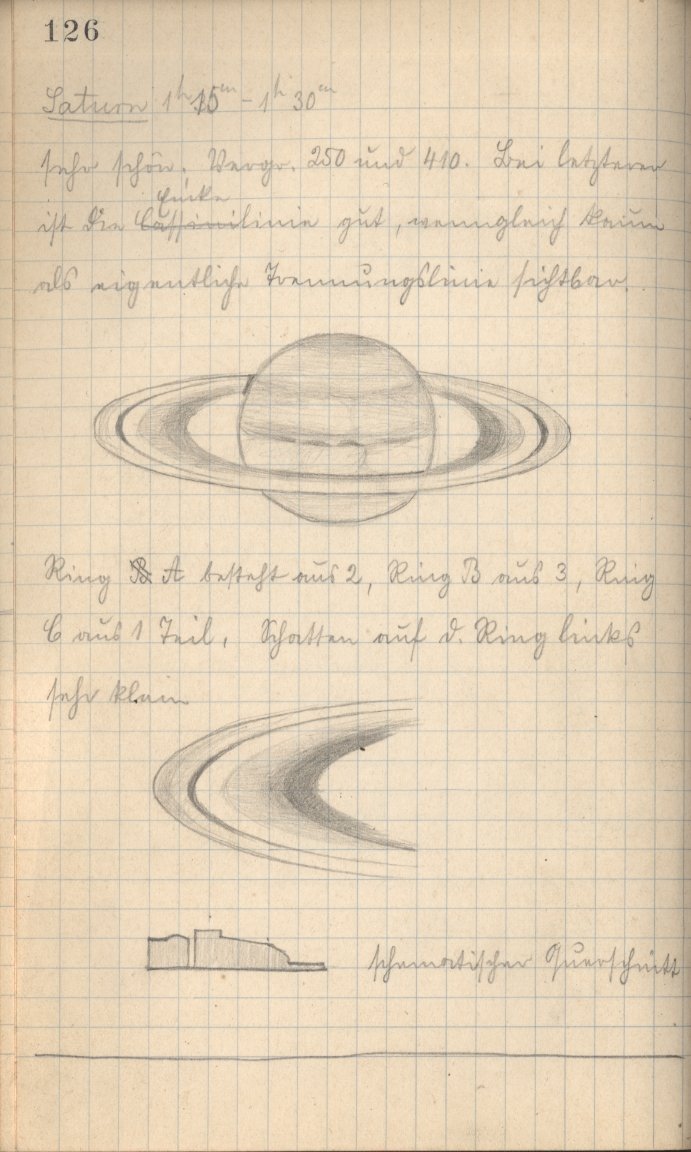 126
Saturn 1h 15m – 1h 30m
sehr schön. Vergr. 250 und 410. Bei letzterer
Encke
ist die Cassinilinie gut, wenngleich kaum
als eigentliche Trennungslinie sichtbar.
Ring B A besteht aus 2, Ring B aus 3, Ring
C aus 1 Teil, Schatten auf d. Ring links
sehr klein
schematischer Querschnitt